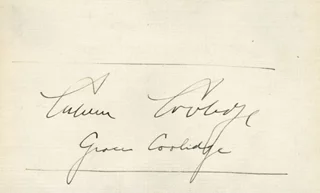 Calvin Coolidge
Grace Coolidge